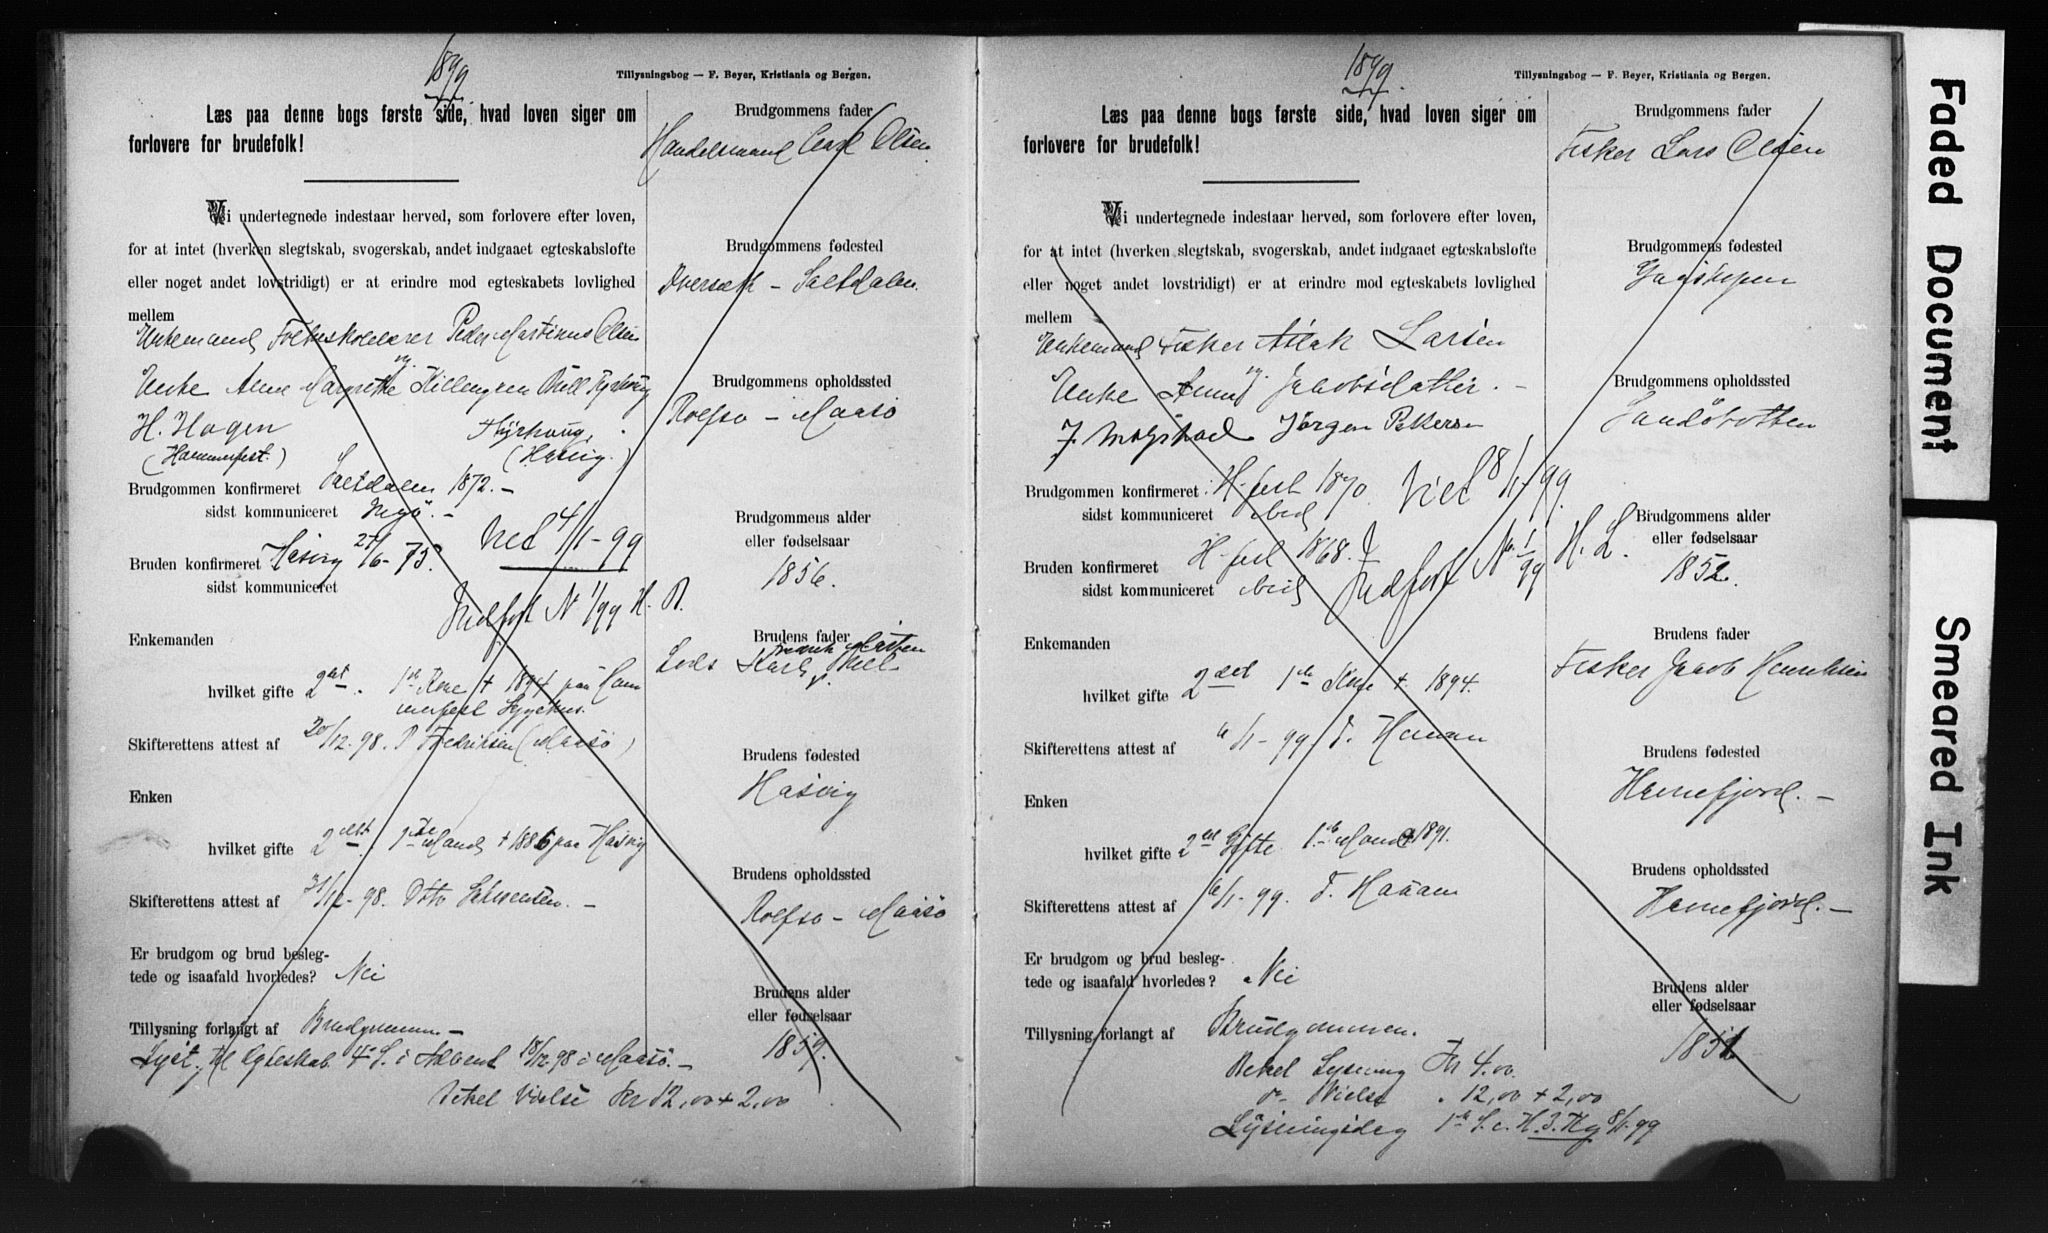 1899
Tillysningsbog — F. Beyer, Kristiania og Bergen.
Læs paa denne bogs første side, hvad loven siger om
forlovere for brudefolk!
Vi undertegnede indestaar herved, som forlovere efter loven,
for at intet (hverken slegtskab, svogerskab, andet indgaaet egteskabsløfte
eller noget andet lovstridigt) er at erindre mod egteskabets lovlighed
mellem
Enkemand Folkeskolelærer Peder Martinus Olsen
og
Enke Anne Margrethe Killengren
H. Hagen
(Hammerfest.) (Hasvig.)
Brudgommen konfirmeret Saltdalen 1872. —
sidst kommuniceret Ingö. —
Viet 4/1-99
Bruden konfirmeret Hasvig 27/6-75.
sidst kommuniceret
Indført N 1/99 H. B.
Enkemanden
hvilket gifte 2det. 1ste Kone + 1894 paa Ham
merfest Sygehus.
Skifterettens attest af 20/12-98. P Fredriksen (Maasö)
Enken
hvilket gifte 2det. 1ste Mand + 1886 paa Hasvig
Skifterettens attest af 31/12-98. Otto —
Er brudgom og brud besleg-
tede og isaafald hvorledes? Nei
Tillysning forlangt af Brudgommen —
Lyst til Egteskab 4de S. i Advent 18/12 98 i Maasö. —
Betel Vielse Kr 12,00 + 2,00
Brudgommens fader
Handelsmand Carl Olsen
Brudgommens fødested
Saltdalen.
Brudgommens opholdssted
Rolfsö — Maasö
Brudgommens alder
eller fødselsaar
1856.
Brudens fader
Lods Karl
Brudens fødested
Hasvig
Brudens opholdssted
Rolfsö — Maasö
Brudens alder
eller fødselsaar
1859.
1899.
Tillysningsbog — F. Beyer, Kristiania og Bergen.
Læs paa denne bogs første side, hvad loven siger om
forlovere for brudefolk!
Vi undertegnede indestaar herved, som forlovere efter loven,
for at intet (hverken slegtskab, svogerskab, andet indgaaet egteskabsløfte
eller noget andet lovstridigt) er at erindre mod egteskabets lovlighed
mellem
Enkemand Fisker Aslak Larsen
og
Enke Anna Jakobsdatter. —
J. Molstad Jörgen Pettersen
Brudgommen konfirmeret H-fest 1870. Viet 8/1-99.
sidst kommuniceret ibid
Bruden konfirmeret H-fest 1868.
sidst kommuniceret ibid
Indført No. 1/99 H. L.
Enkemanden
hvilket gifte 2det 1ste Kone + 1894.
Skifterettens attest af 6/1-99. F. Hauan
Enken
hvilket gifte 2det Gifte 1ste Mand + 1891.
Skifterettens attest af 6/1-99. F. Hauan
Er brudgom og brud besleg-
tede og isaafald hvorledes? Nei
Tillysning forlangt af Brudgommen.
Betel Lysning Kr 4.00
do Vielse " 12,00 + 2,00
Lysningsdag 1ste S. e. H. 3. Kg 8/1-99
Brudgommens fader
Fisker Lars Olsen
Brudgommens fødested
Brudgommens opholdssted
Sandöbotten
Brudgommens alder
eller fødselsaar
1852.
Brudens fader
Fisker Jacob Henriksen
Brudens fødested
Hønefjord. —
Brudens opholdssted
Hønefjord. —
Brudens alder
eller fødselsaar
Faded Document
Smeared Ink